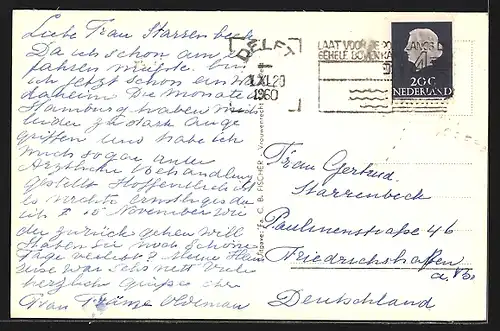 Liebe Frau Starrenbeck
Da ich schon am
fahren mußte bin
ich jetzt schon ein
daheim Die Monate in
Hamburg haben mich
leider zu stark ange
griffen und habe ich
mich sogar unter
Ärztliche Behandlung
gestellt Hoffentlich ist
es nichts ernstliges da
ich November wie
der zurück gehen will
Haben Sie noch schöne
Tage verlebt? Meine Heim
reise war sehr nett Viele
herzliche Grüße Ihre
Frau
DELFT
1.XI.20
1960
LAAT VOOR DE LANGS DE
GEHELE BOVENKANT
20C
NEDERLAND
Uitgave: Fa. C. B. FISCHER - Vrouwenrecht
Frau Gertrud
Starrenbeck
Paulinenstraße 46
Friedrichshaffen
a. Bs.
Deutschland